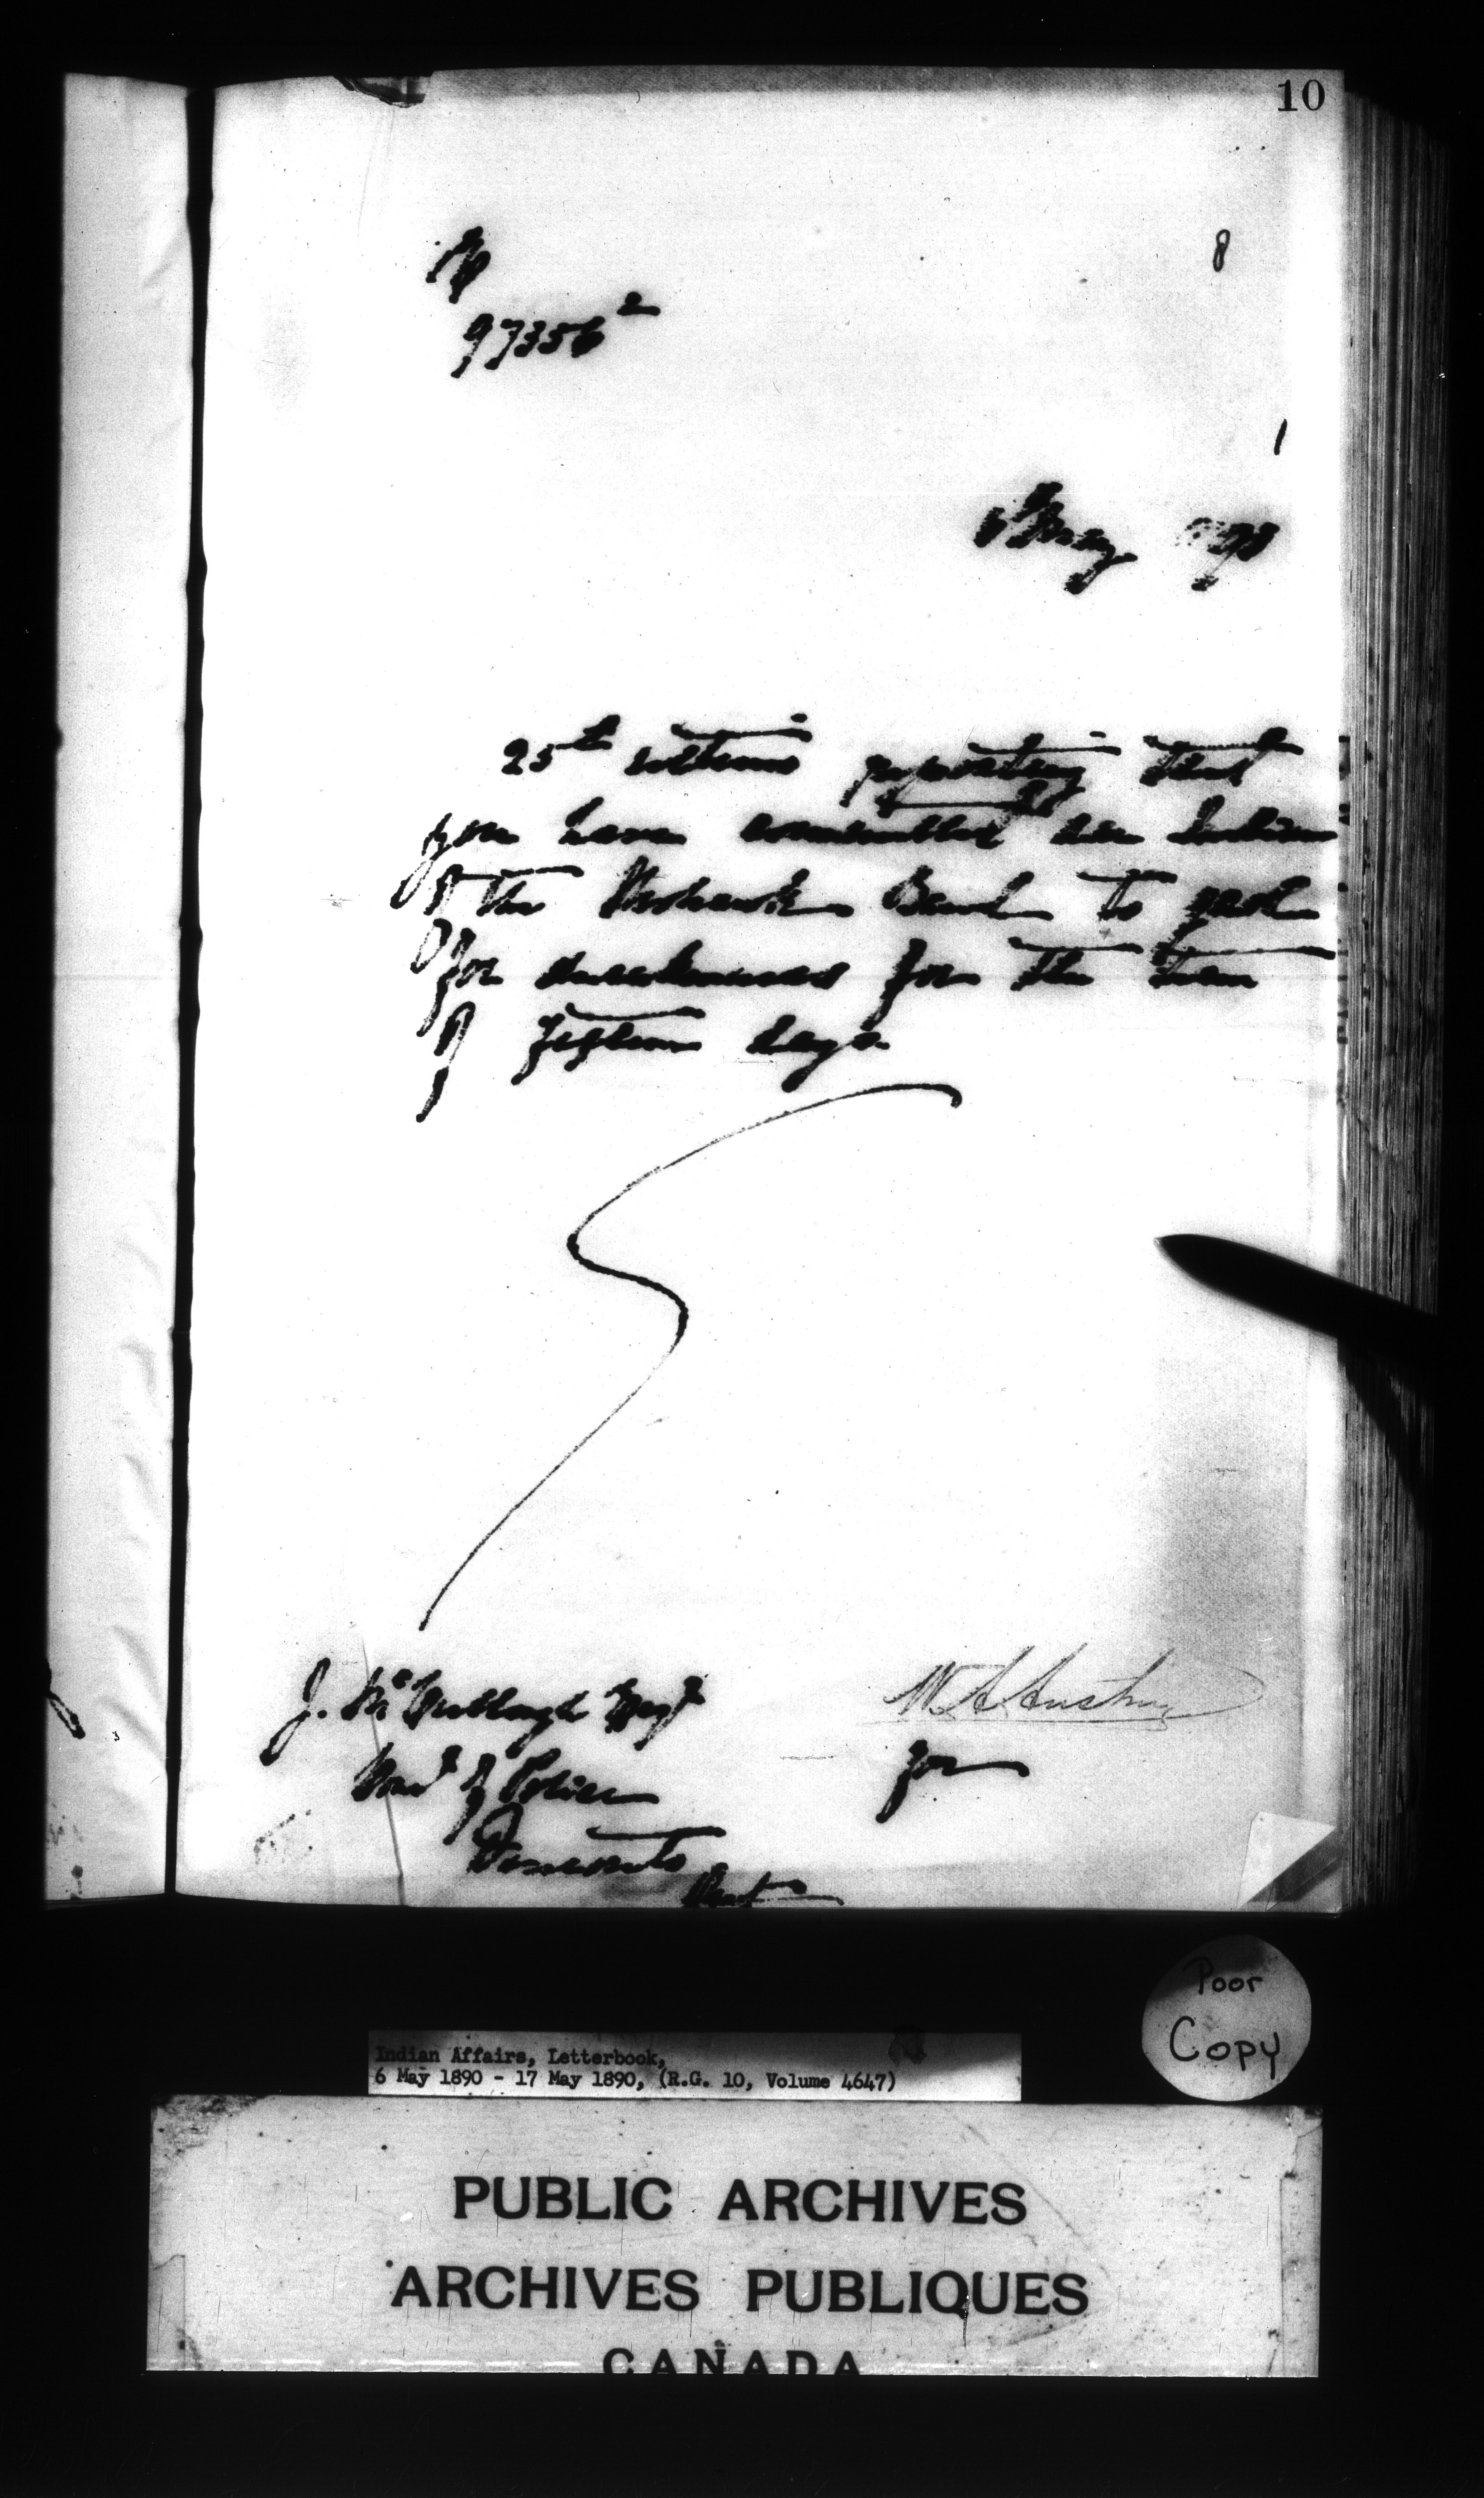 10
8
97356²
1
6th May 90
25th ultimo reporting that
you have committed an Indian
of the Mohawk Band to gaol
for drunkenness for the term
of fifteen days.
J. McCullough Esqr
of Police
W A Austin
for
Deseronto
Ont
Poor
Copy
Indian Affairs, Letterbook,
6 May 1890 - 17 May 1890, (R.G. 10, Volume 4647)
PUBLIC ARCHIVES
ARCHIVES PUBLIQUES
CANADA